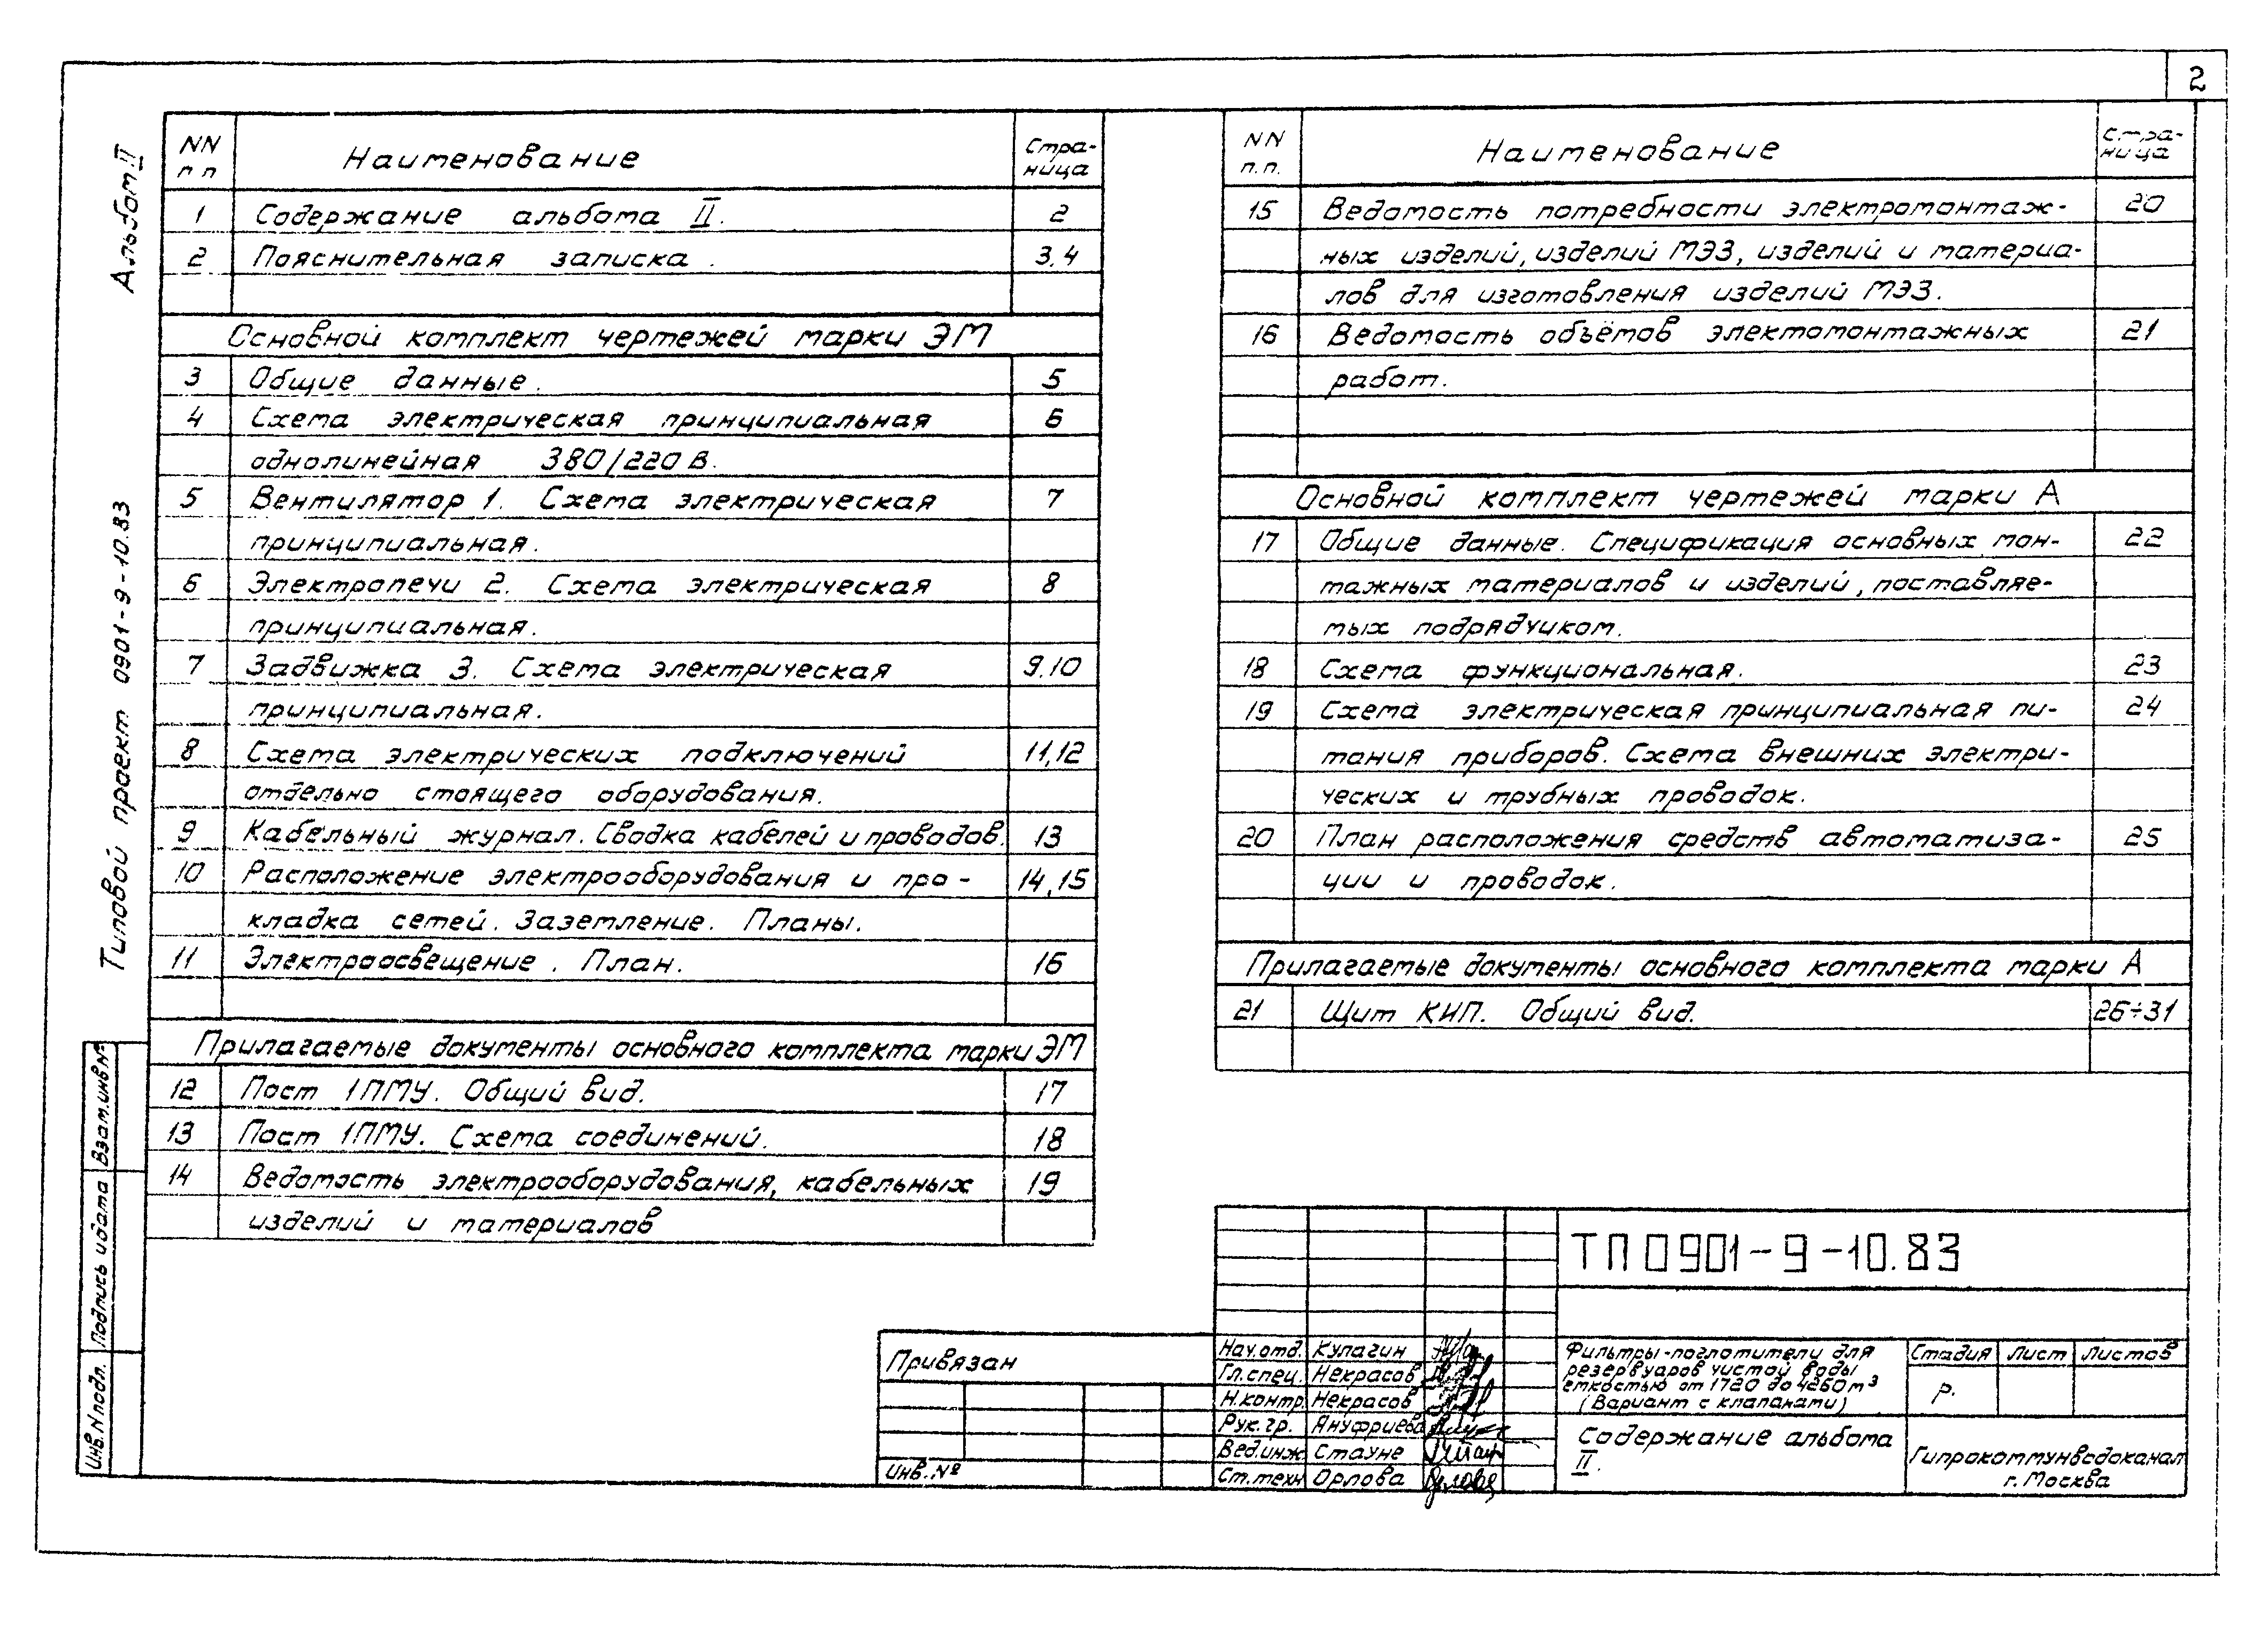 2
Альбом II
Типовой проект 0901-9-10.83
NN п п Наименование Стра-ница
1 Содержание альбома II. 2
2 Пояснительная записка. 3.4
Основной комплект чертежей марки ЭМ
3 Общие данные. 5
4 Схема электрическая принципиальная 6
однолинейная 380/220 В.
5 Вентилятор 1. Схема электрическая 7
принципиальная.
6 Электропечи 2. Схема электрическая 8
принципиальная.
7 Задвижка 3. Схема электрическая 9.10
принципиальная.
8 Схема электрических подключений 11,12
отдельно стоящего оборудования.
9 Кабельный журнал. Сводка кабелей и проводов. 13
10 Расположение электрооборудования и про- 14,15
кладка сетей. Заземление. Планы.
11 Электроосвещение. План. 16
Прилагаемые документы основного комплекта марки ЭМ
12 Пост 1ПМУ. Общий вид. 17
13 Пост 1ПМУ. Схема соединений. 18
14 Ведомость электрооборудования, кабельных 19
изделий и материалов
NN п.п. Наименование Стра-ница
15 Ведомость потребности электромонтаж- 20
ных изделий, изделий МЭЗ, изделий и материа-
лов для изготовления изделий МЭЗ.
16 Ведомость объёмов электомонтажных 21
работ.
Основной комплект чертежей марки А
17 Общие данные. Спецификация основных мон- 22
тажных материалов и изделий, поставляе-
мых подрядчиком.
18 Схема функциональная. 23
19 Схема электрическая принципиальная пи- 24
тания приборов. Схема внешних электри-
ческих и трубных проводок.
20 План расположения средств автоматиза- 25
ции и проводок.
Прилагаемые документы основного комплекта марки А
21 Щит КИП. Общий вид. 26÷31
Взам.инв№
Подпись и дата
Инв.N подл.
Привязан
Инв.№
ТП 0901-9-10.83
Нач.отд. Кулагин
Гл.спец. Некрасов
Н.контр. Некрасов
Рук.гр. Ануфриева
Вед.инж. Стауне
Ст.техн. Орлова
Фильтры-поглотители для
резервуаров чистой воды
емкостью от 1720 до 4260 м³
(Вариант с клапанами)
Стадия Лист Листов
Р.
Содержание альбома
II.
Гипрокоммунводоканал
г. Москва